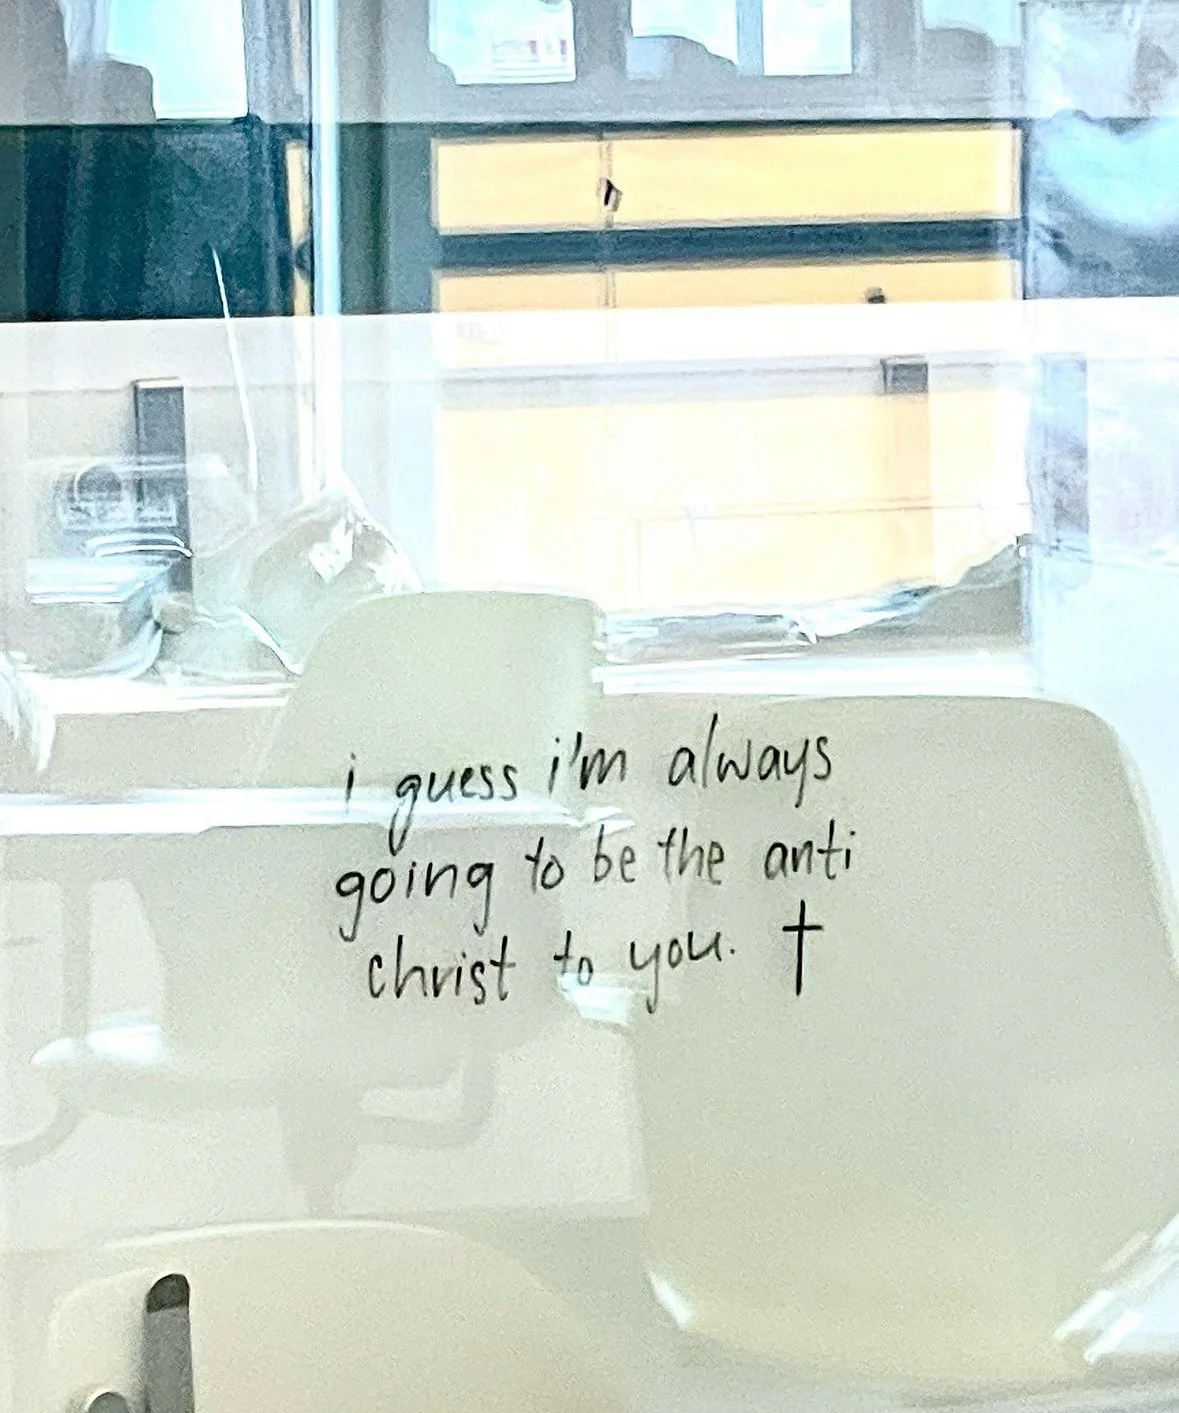 i guess i'm always
going to be the anti
christ to you. †